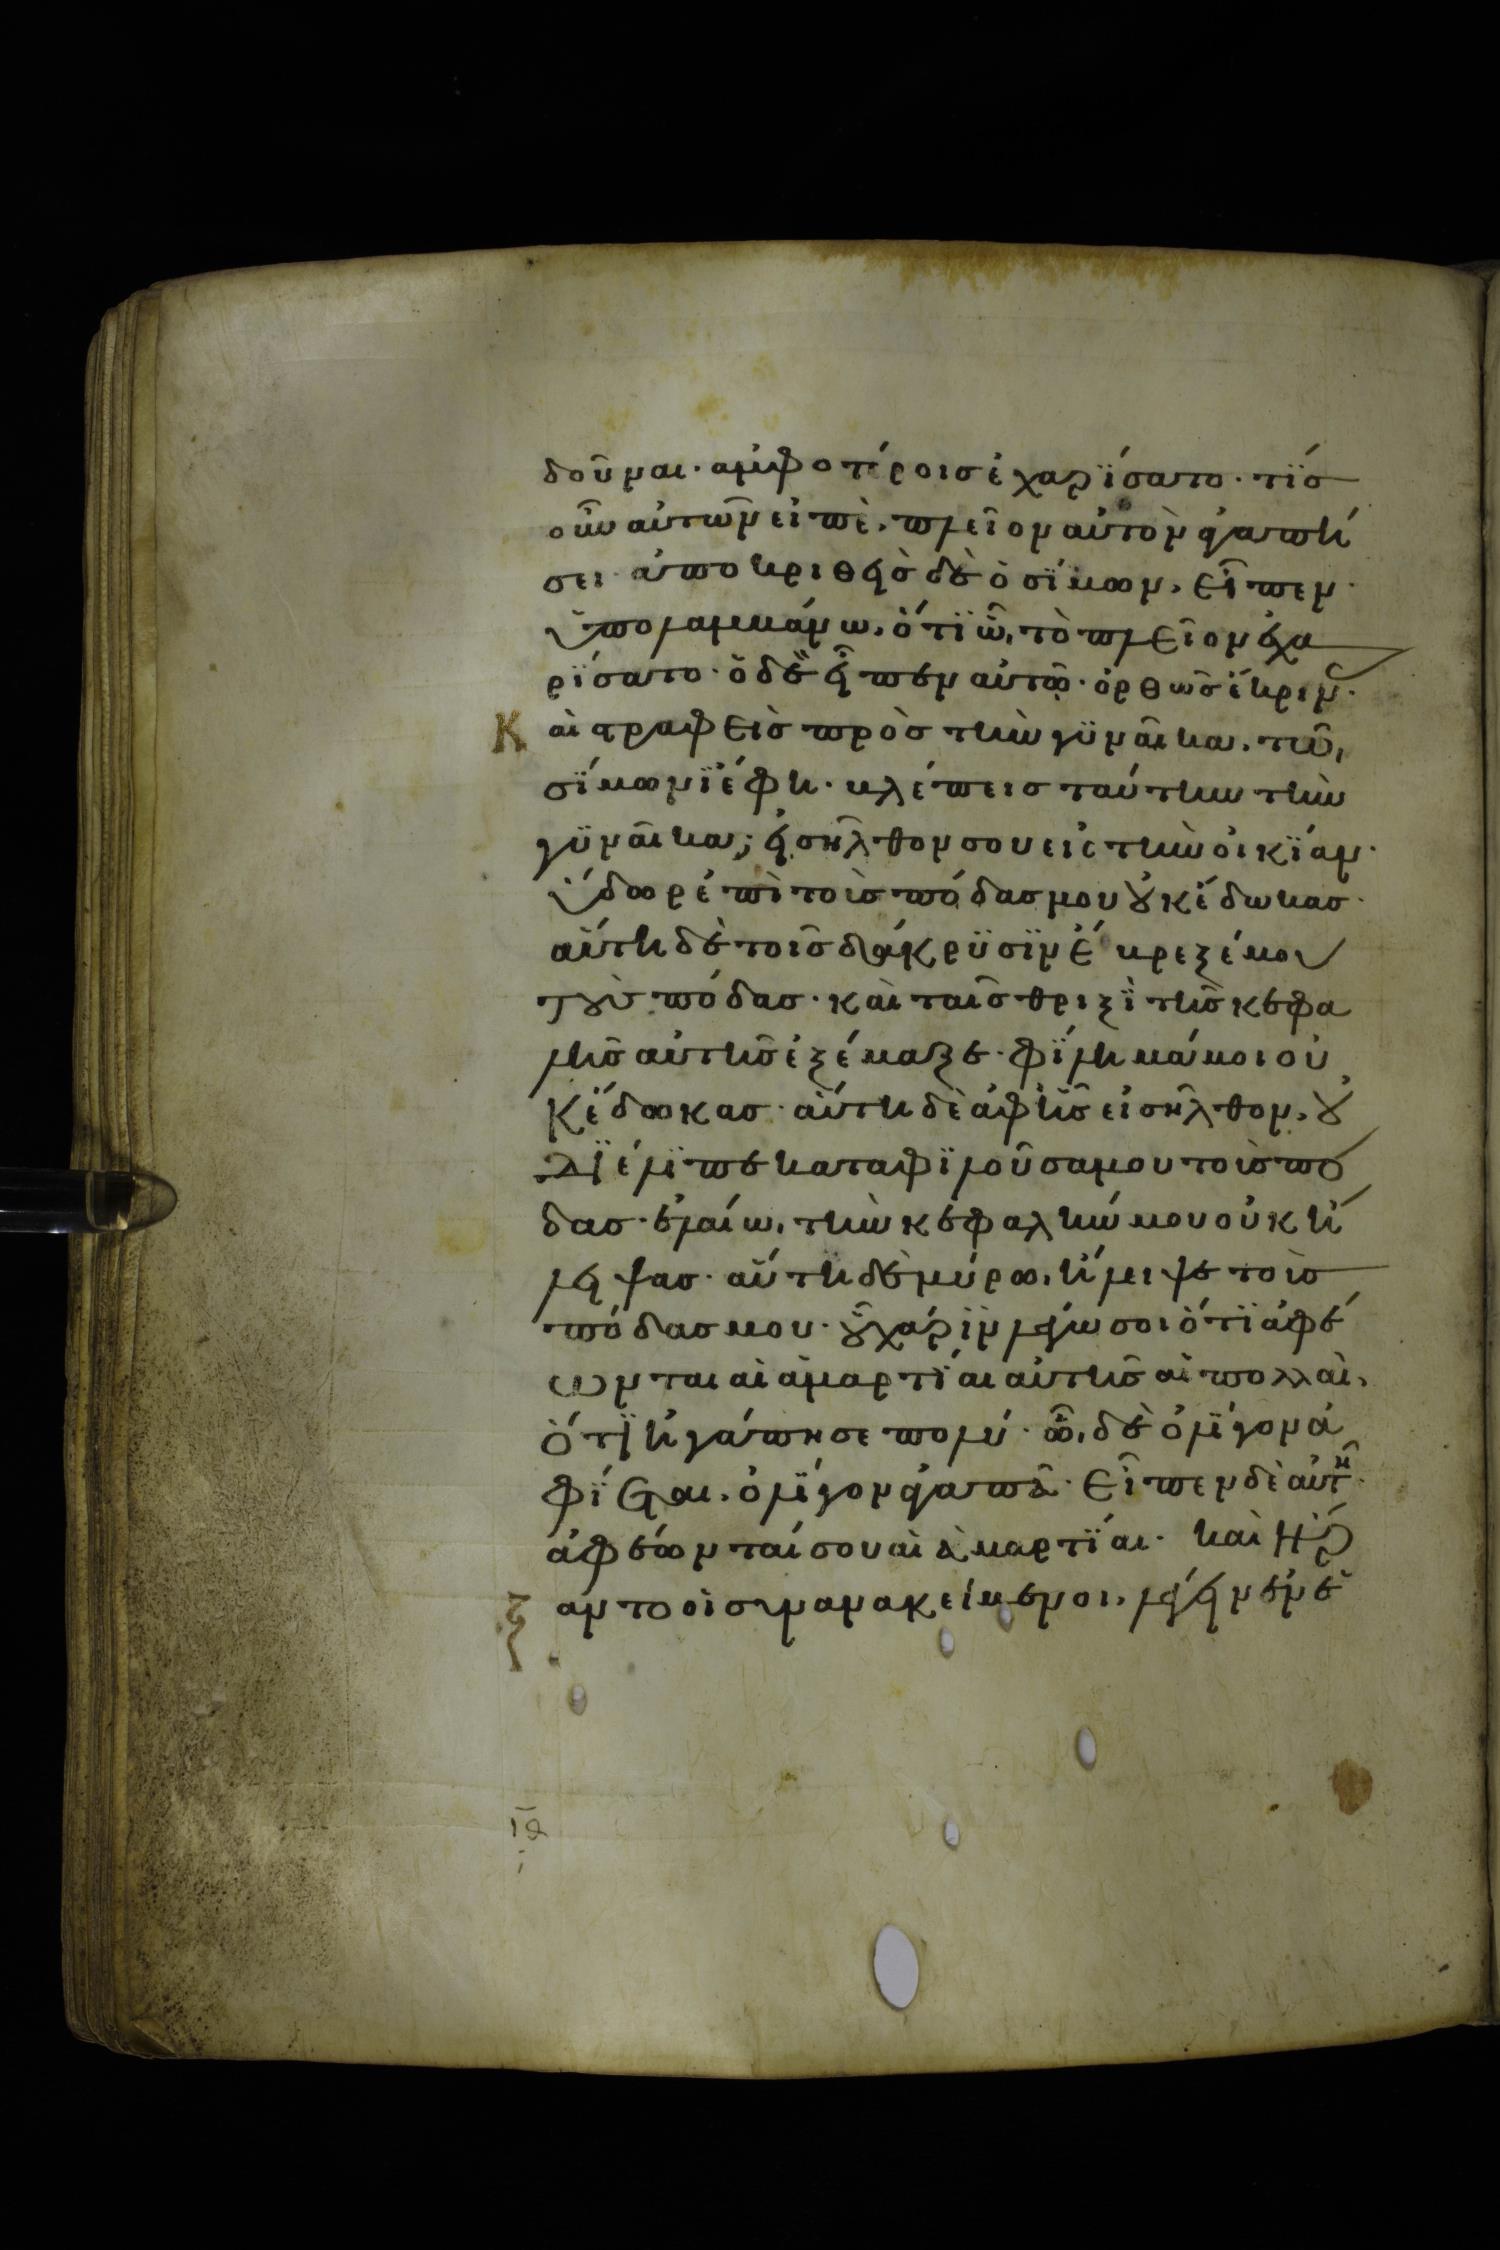 δοῦναι· ἀμφοτέροις ἐχαρΐσατο· τΐς
οὖν αὐτῶν εἰπὲ, πλεῖον αὐτὸν ἀγαπή
σει· ἀποκριθεὶς δὲ ὁ σΐμων, εἶπεν·
ὑπολαμμάνω, ὅτϊ ὧ, τὸ πλεῖον ἐχα
ρΐσατο· ὁ δὲ εἶπεν αὐτῶ· ὀρθῶς ἔκρινας·
Καὶ στραφεὶς πρὸς τὴν γϋναῖκα, τῶ,
σΐμωνϊ ἔφη· βλέπεις ταύτην τὴν
γϋναῖκα; εἰσῆλθον σου εἰς τὴν οἰκΐαν·
ὕδωρ ἐπὶ τοὺς πόδας μου οὐκ ἔδωκας·
αὕτη δὲ τοῖς δάκρϋσϊν ἔβρεξέ μου
τοὺς πόδας· καὶ ταῖς θριξῒ τῆς κεφα
λῆς αὐτῆς ἐξέμαξε· φΐλημά μοι οὐ
κ ἔδωκας· αὕτη δὲ ἀφ ἧς εἰσῆλθον, οὐ
δϊέλϊπε καταφϊλοῦσα μου τοὺς πό
δας· ἐλαίω, τὴν κεφαλήν μου οὐκ ἤ
λειψας· αὕτη δὲ μύρω, ἤλειψε τοὺς
πόδας μου· οὗ χάρϊν λέγω σοι ὅτϊ ἀφέ
ωνται αἱ ἁμαρτΐαι αὐτῆς αἱ πολλαὶ,
ὅτϊ ἠγάπησε πολύ· ὧ, δὲ ὀλΐγον ἀ
φΐεται, ὀλΐγον ἀγαπᾶ· εἶπεν δὲ αὐτῆ·
ἀφέωνταί σου αἱ ἁμαρτΐαι· καὶ ἤρξ
αντο οἱ συνανακείμενοι, λέγειν ἐν ἑ
ιθ